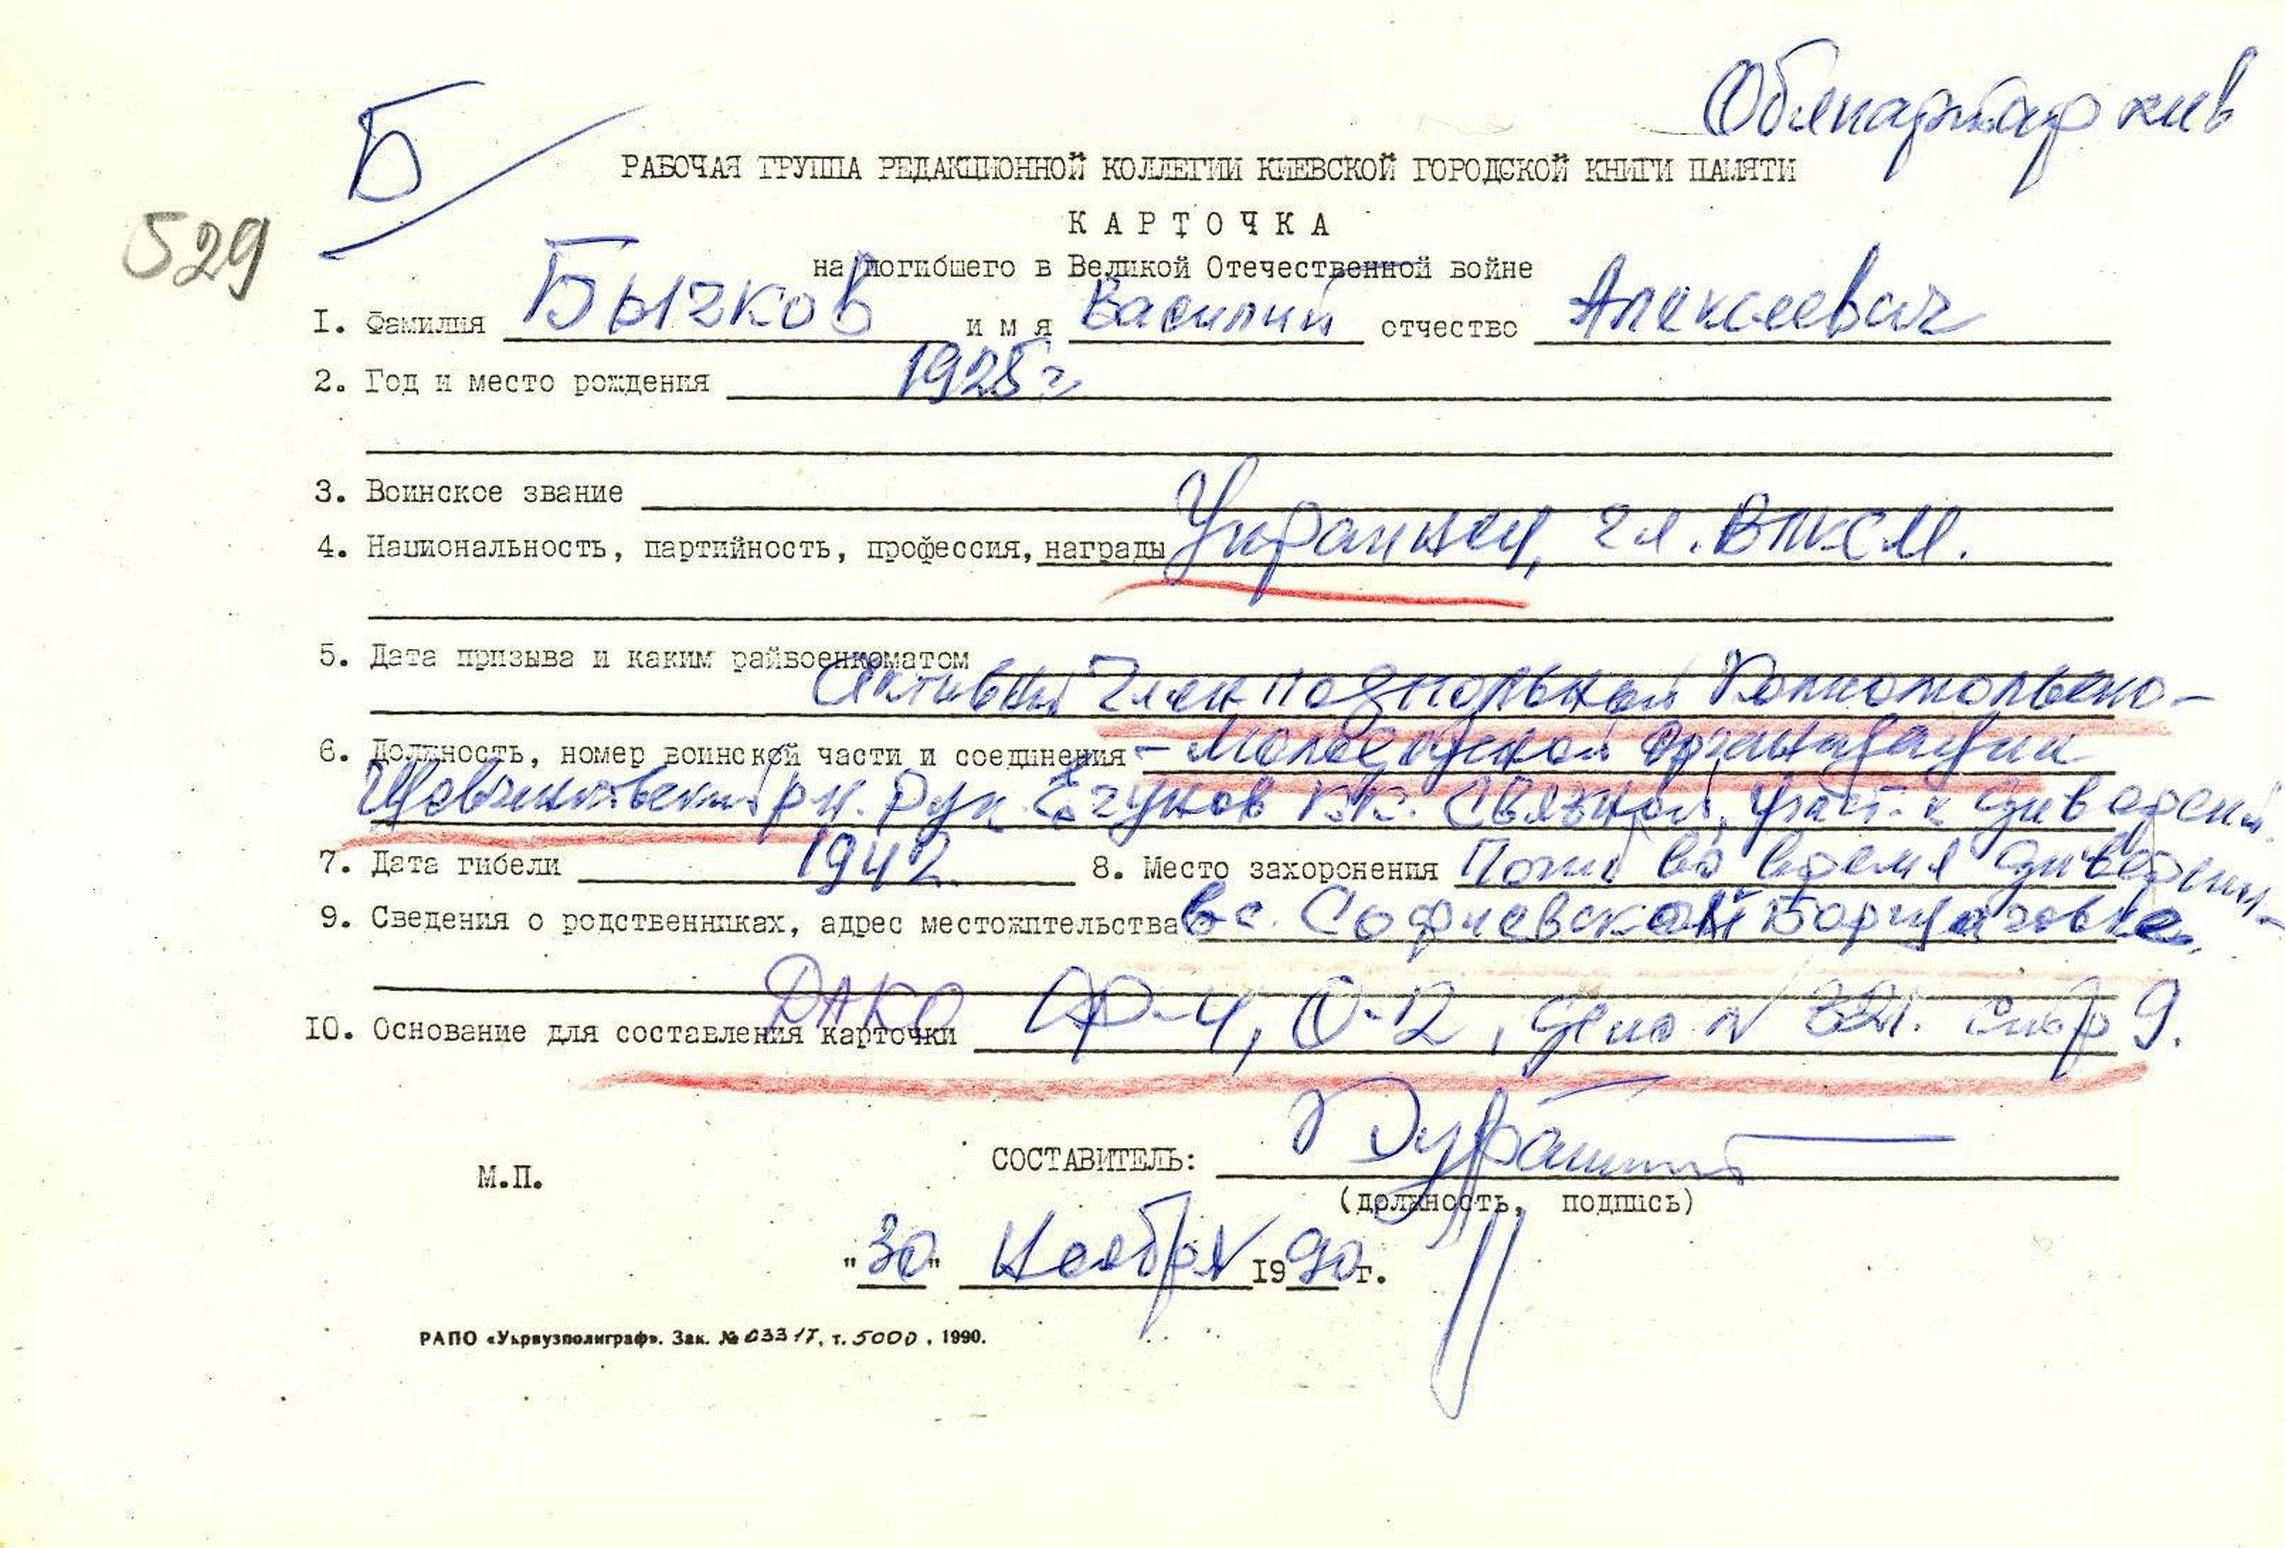 Облпартархив
Б
529
РАБОЧАЯ ГРУППА РЕДАКЦИОННОЙ КОЛЛЕГИИ КИЕВСКОЙ ГОРОДСКОЙ КНИГИ ПАМЯТИ
КАРТОЧКА
на погибшего в Великой Отечественной войне
I. Фамилия Бычков имя Василий отчество Алексеевич
2. Год и место рождения 1925 г.
3. Воинское звание
4. Национальность, партийность, профессия, награды Украинец, чл. ВЛКСМ.
5. Дата призыва и каким райвоенкоматом
Активный член подпольной комсомольско-
6. Должность, номер воинской части и соединения - молодежной организации
Шевченковский р-н. рук. Егунов К.К. Связной, участ. к диверсий
7. Дата гибели 1942. 8. Место захоронения Погиб во время диверсии
9. Сведения о родственниках, адрес местожительства в с. Софиевской Борщаговке.
10. Основание для составления карточки ДАКО ф-4, О-12, дело № 321. стр 9.
СОСТАВИТЕЛЬ:
М.П.
(должность, подпись)
"30" Ноября 1990 г.
РАПО «Укрвузполиграф». Зак. № 0331Т, т. 5000, 1990.